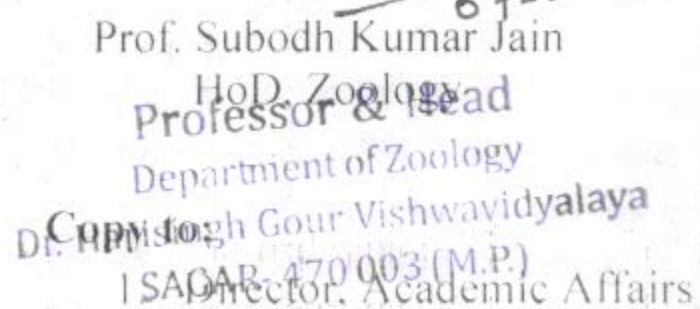 Prof. Subodh Kumar Jain
HoD, Zoology
Professor & Head
Department of Zoology
Copy to:
Dr. Harisingh Gour Vishwavidyalaya
SAGAR- 470 003 (M.P.)
1 Director, Academic Affairs